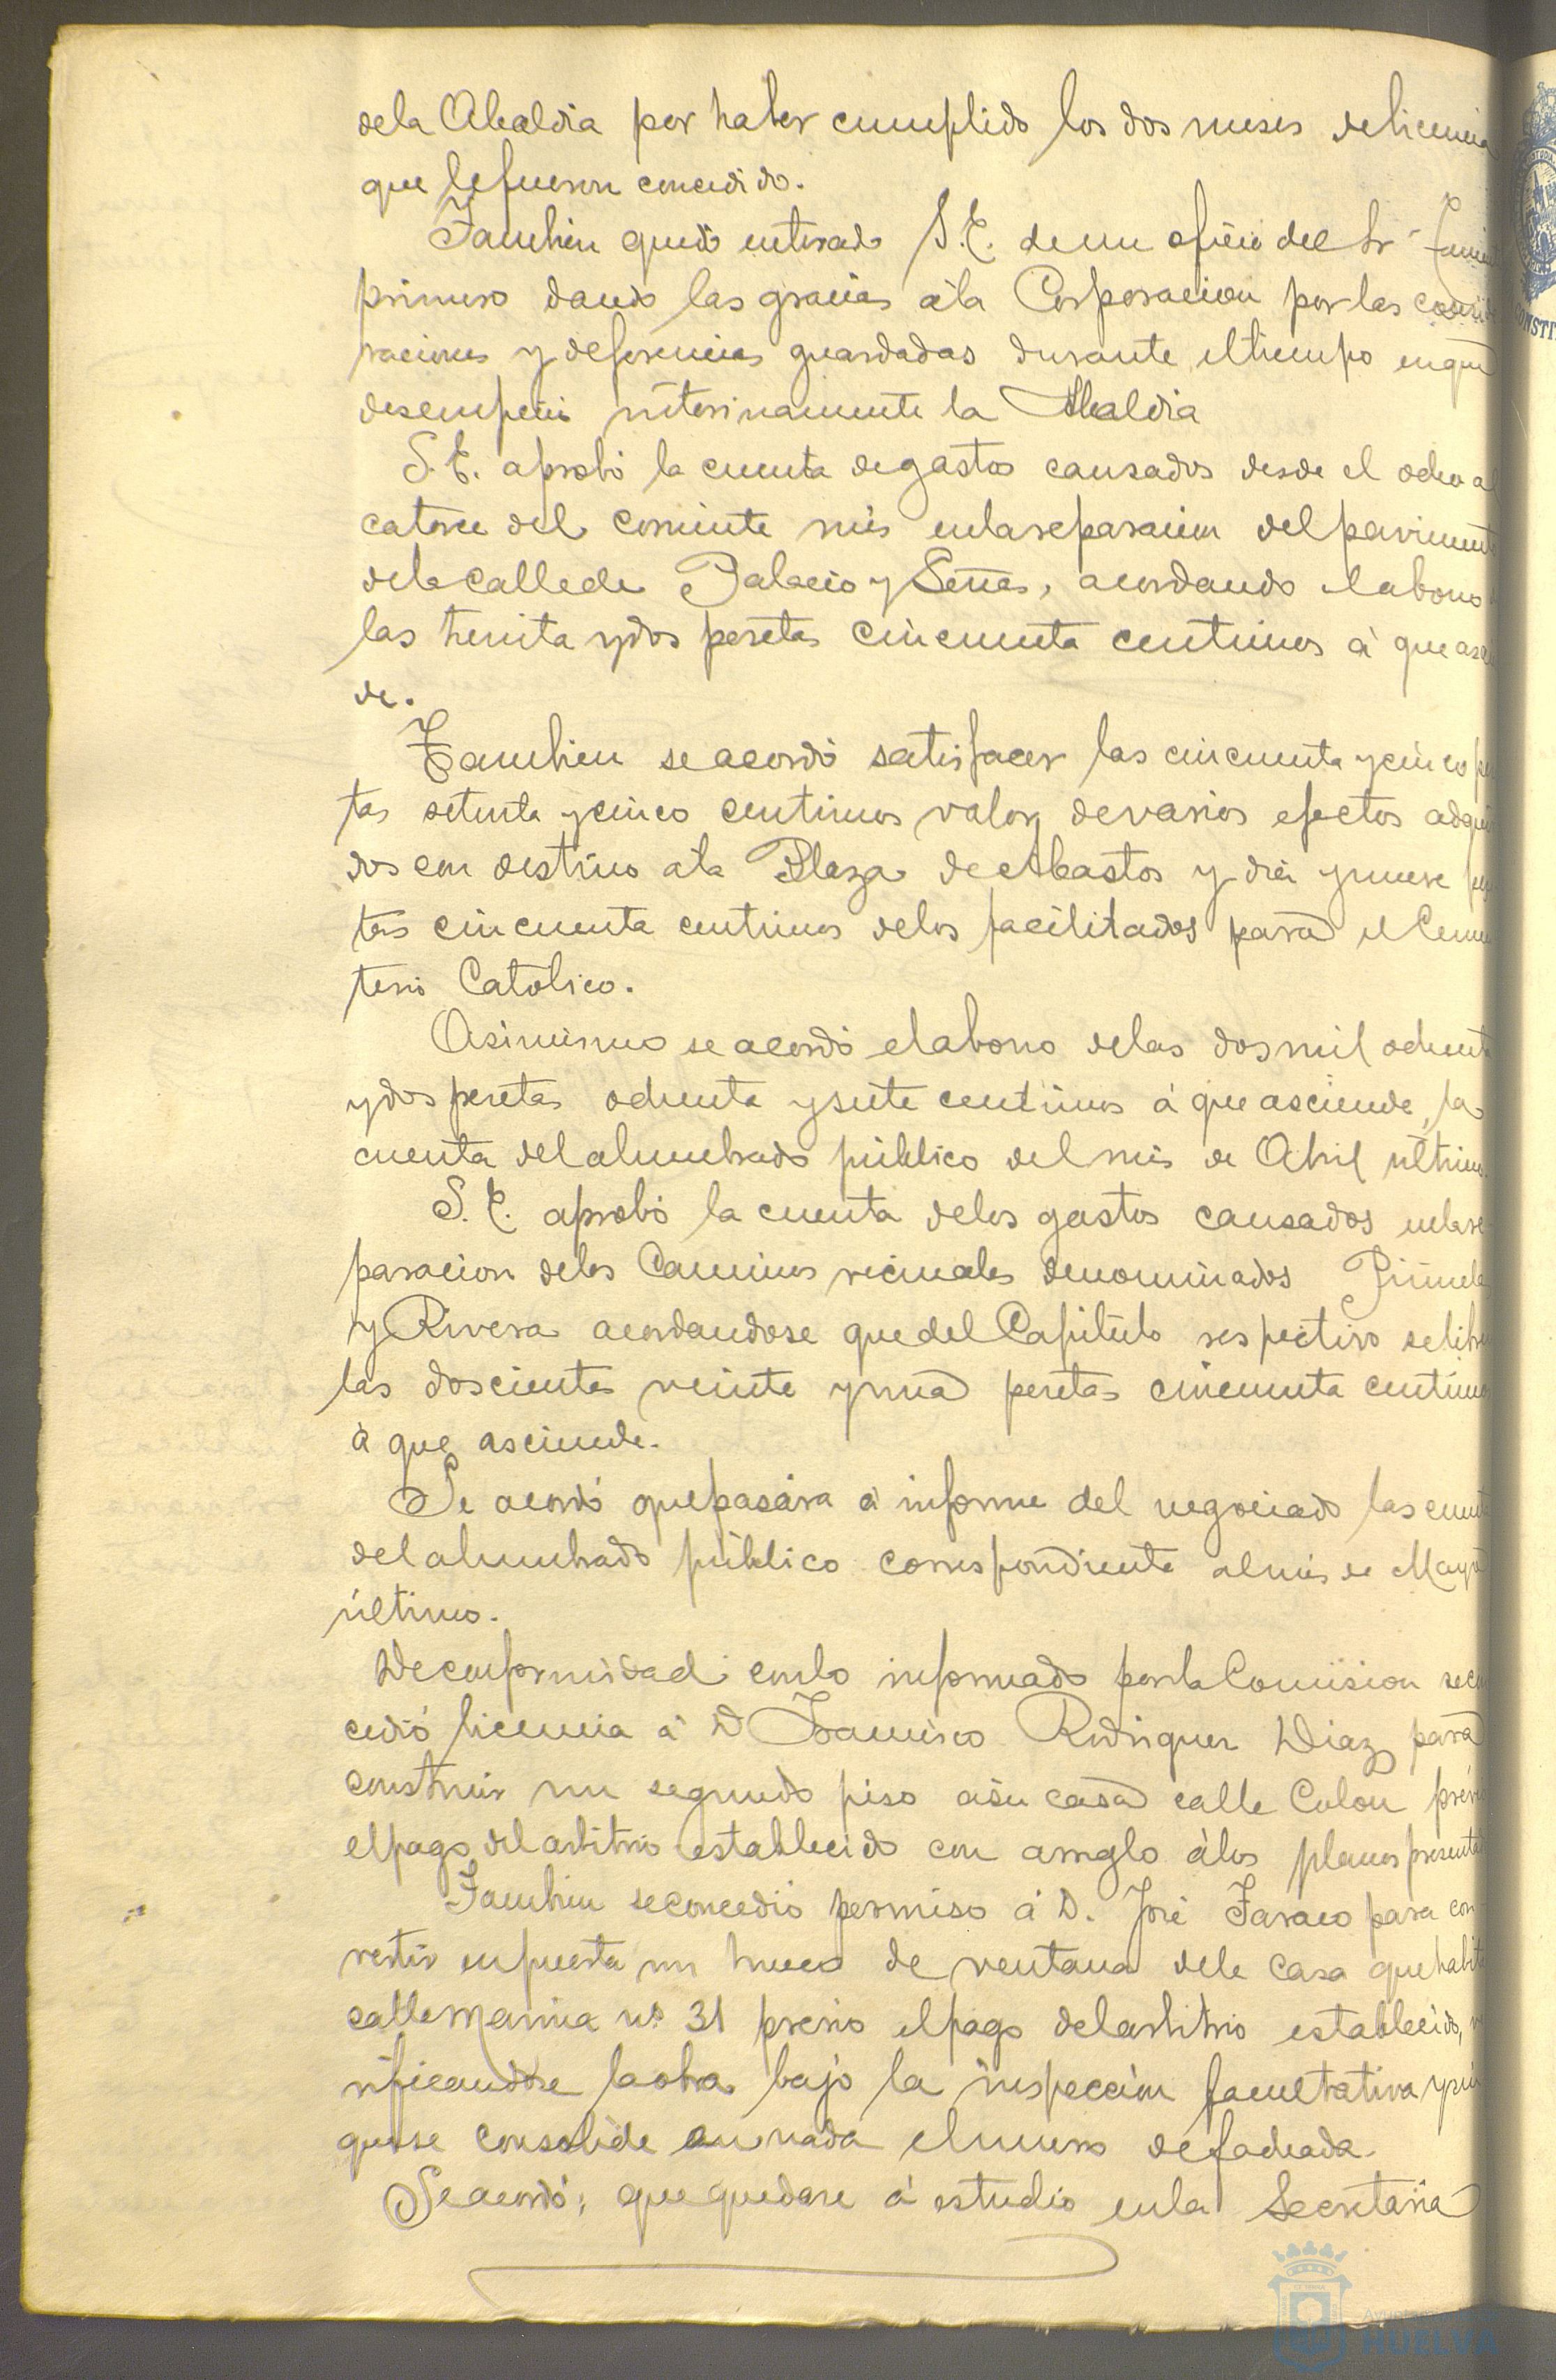 dela Alcaldia por haber cumplido los dos meses de licencia
que le fueron concedido.
Tambien quedó enterado S.E. de un oficio del Sr
primero dando las gracias á la Corporacion por las consid
raciones y deferencias guardadas durante el tiempo en que
desempeñó interinamente la Alcaldia
S.E. aprobó la cuenta de gastos causados desde el ocho al
catorce del corriente mes en la reparacion del paviment
de la calle de Palacio y acordando el abono
las treinta y dos pesetas cincuenta centimos á que ascien
de.
Tambien se acordó satisfacer las cincuenta y cinco pe
tas setenta y cinco centimos valor de varios efectos adqui
dos con destino a la Plaza de Abastos y diez y nueve pe
tas cincuenta centimos de los facilitados para el Cemen
terio Catolico.
Asimismo se acordó el abono de las dos mil ochenta
y dos pesetas ochenta y siete centimos á que asciende la
cuenta del alumbrado público del mes de Abril ultimo.
S.E. aprobó la cuenta de los gastos causados en la re
paracion de los Caminos vecinales denominados
y Rivera acordandose que del Capitulo respectivo se libre
las doscientas veinte y una pesetas cincuenta centimos
á que asciende.
Se acordó que pasára á informe del negociado las cuenta
del alumbrado público correspondiente al mes de Mayo
último.
De conformidad con lo informado por la Comision se con
cedió licencia á D Francisco Rodriguez Diaz para
construir un segundo piso a su casa calle Colon previo
el pago del arbitrio establecido con arreglo á los planos presenta
Tambien se concedió permiso á D. José para con
vertir en puerta un hueco de ventana de la casa que habita
calle Marina nº 31 previo el pago del arbitrio establecido, ve
rificandose la obra bajo la inspeccion facultativa y sin
que se consolide en nada el muro de fachada.
Se acordó; que quedase á estudio en la Secretaria
CONSTI
HUELVA